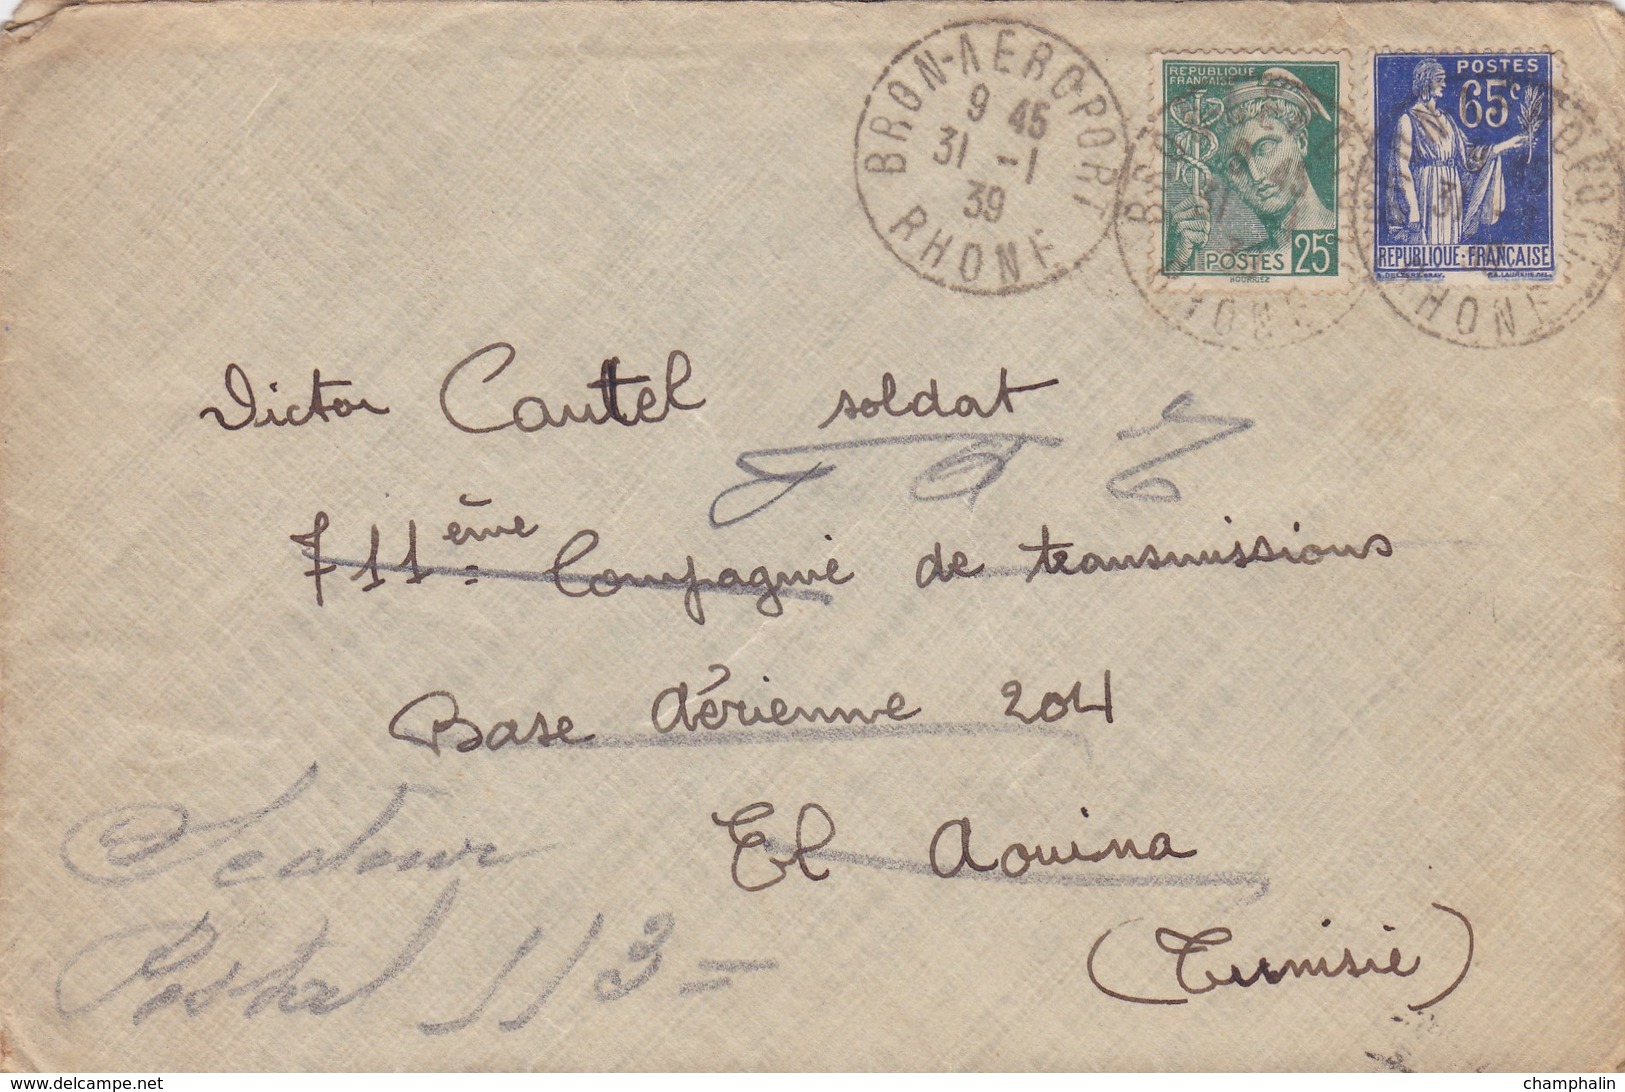 BRON-AEROPORT
9 45
31 -1
39
RHONE
REPUBLIQUE
FRANCAISE
POSTES 25c
RODRIGUEZ
POSTES
65c
REPUBLIQUE-FRANÇAISE
Victor Cautel soldat
711ème Compagnie de transmissions
Base Aérienne 204
El Aouina
(Tunisie)
Secteur
Postal 113 =
www.delcampe.net
champhalin